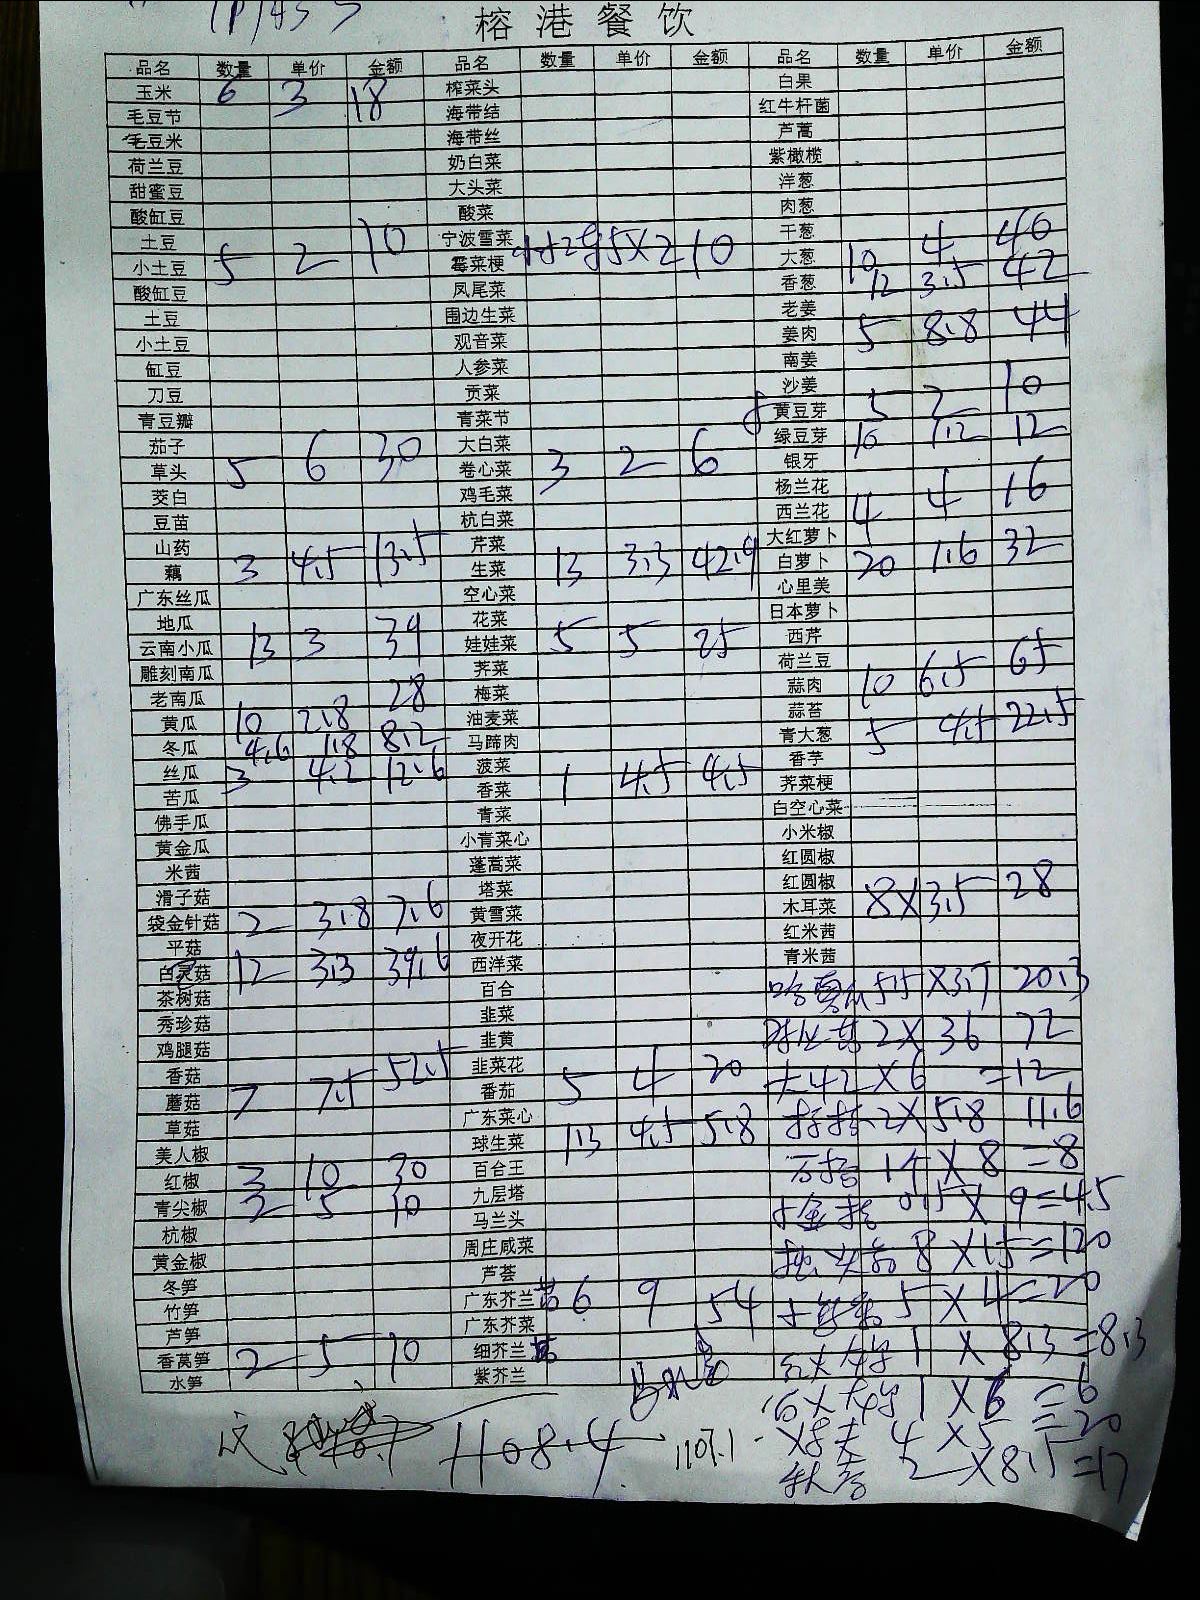 榕港餐饮
品名 数量 单价 金额 品名 数量 单价 金额 品名 数量 单价 金额
玉米 6 3 18 榨菜头 白果
毛豆节 海带结 红牛杆菌
毛豆米 海带丝 芦蒿
荷兰豆 奶白菜 紫橄榄
甜蜜豆 大头菜 洋葱
酸缸豆 酸菜 肉葱
土豆 宁波雪菜 干葱
小土豆 5 2 10 霉菜梗 5X2 10 大葱 10 4 40
酸缸豆 凤尾菜 香葱 12 3.5 42
土豆 围边生菜 老姜
小土豆 观音菜 姜肉 5 8.8 44
缸豆 人参菜 南姜
刀豆 贡菜 沙姜
青豆瓣 青菜节 黄豆芽 5 2 10
茄子 大白菜 绿豆芽 10 1.2 12
草头 5 6 30 卷心菜 3 2 6 银牙
茭白 鸡毛菜 杨兰花
豆苗 杭白菜 西兰花 4 4 16
山药 芹菜 大红萝卜
藕 3 4.5 13.5 生菜 13 3.3 42.9 白萝卜 20 1.6 32
广东丝瓜 空心菜 心里美
地瓜 花菜 日本萝卜
云南小瓜 13 3 39 娃娃菜 5 5 25 西芹
雕刻南瓜 荠菜 荷兰豆
老南瓜 梅菜 蒜肉 10 6.5 65
黄瓜 10 2.8 28 油麦菜 蒜苔
冬瓜 4.6 1.8 8.2 马蹄肉 青大葱 5 4.5 22.5
丝瓜 3 4.2 12.6 菠菜 香芋
苦瓜 香菜 1 4.5 4.5 荠菜梗
佛手瓜 青菜 白空心菜
黄金瓜 小青菜心 小米椒
米茜 蓬蒿菜 红圆椒
滑子菇 塔菜 红圆椒
袋金针菇 2 3.8 7.6 黄雪菜 木耳菜 8X3.5 28
平菇 夜开花 红米茜
白灵菇 12 3.3 39.6 西洋菜 青米茜
茶树菇 百合 5.5X3.7 20.3
秀珍菇 韭菜 2X36 72
鸡腿菇 韭黄
香菇 韭菜花 2X6 =12
蘑菇 7 7.5 52.5 番茄 5 4 20
草菇 广东菜心 2X5.8 11.6
美人椒 球生菜 1.3 4.5 5.8
红椒 3 10 30 百合王 X8=8
青尖椒 2 5 10 九层塔 0.5X9=4.5
杭椒 马兰头
黄金椒 周庄咸菜 8X15=120
冬笋 芦荟
竹笋 广东芥兰苗 6 9 54 5X4=20
芦笋 广东芥菜
香莴笋 2 5 10 细芥兰苗 1X8.3=8.3
水笋 紫芥兰
1X6=6
1108.4 1107.1 4X5=20
2X8.5=17